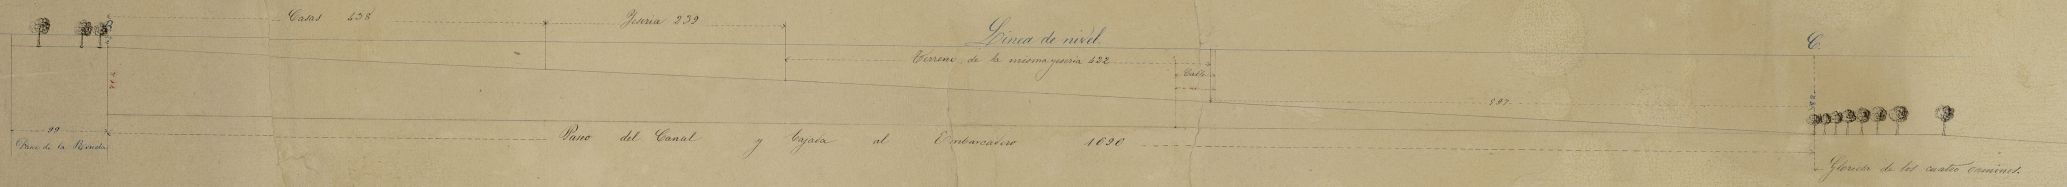 Casas 438
Yeseria 239
Linea de nivel.
C.
Terreno de la misma yeseria 422
Calle
597
99
Paseo de la Ronda
Paseo del Canal y bajada al Embarcadero 1090
Glorieta de los cuatro caminos.